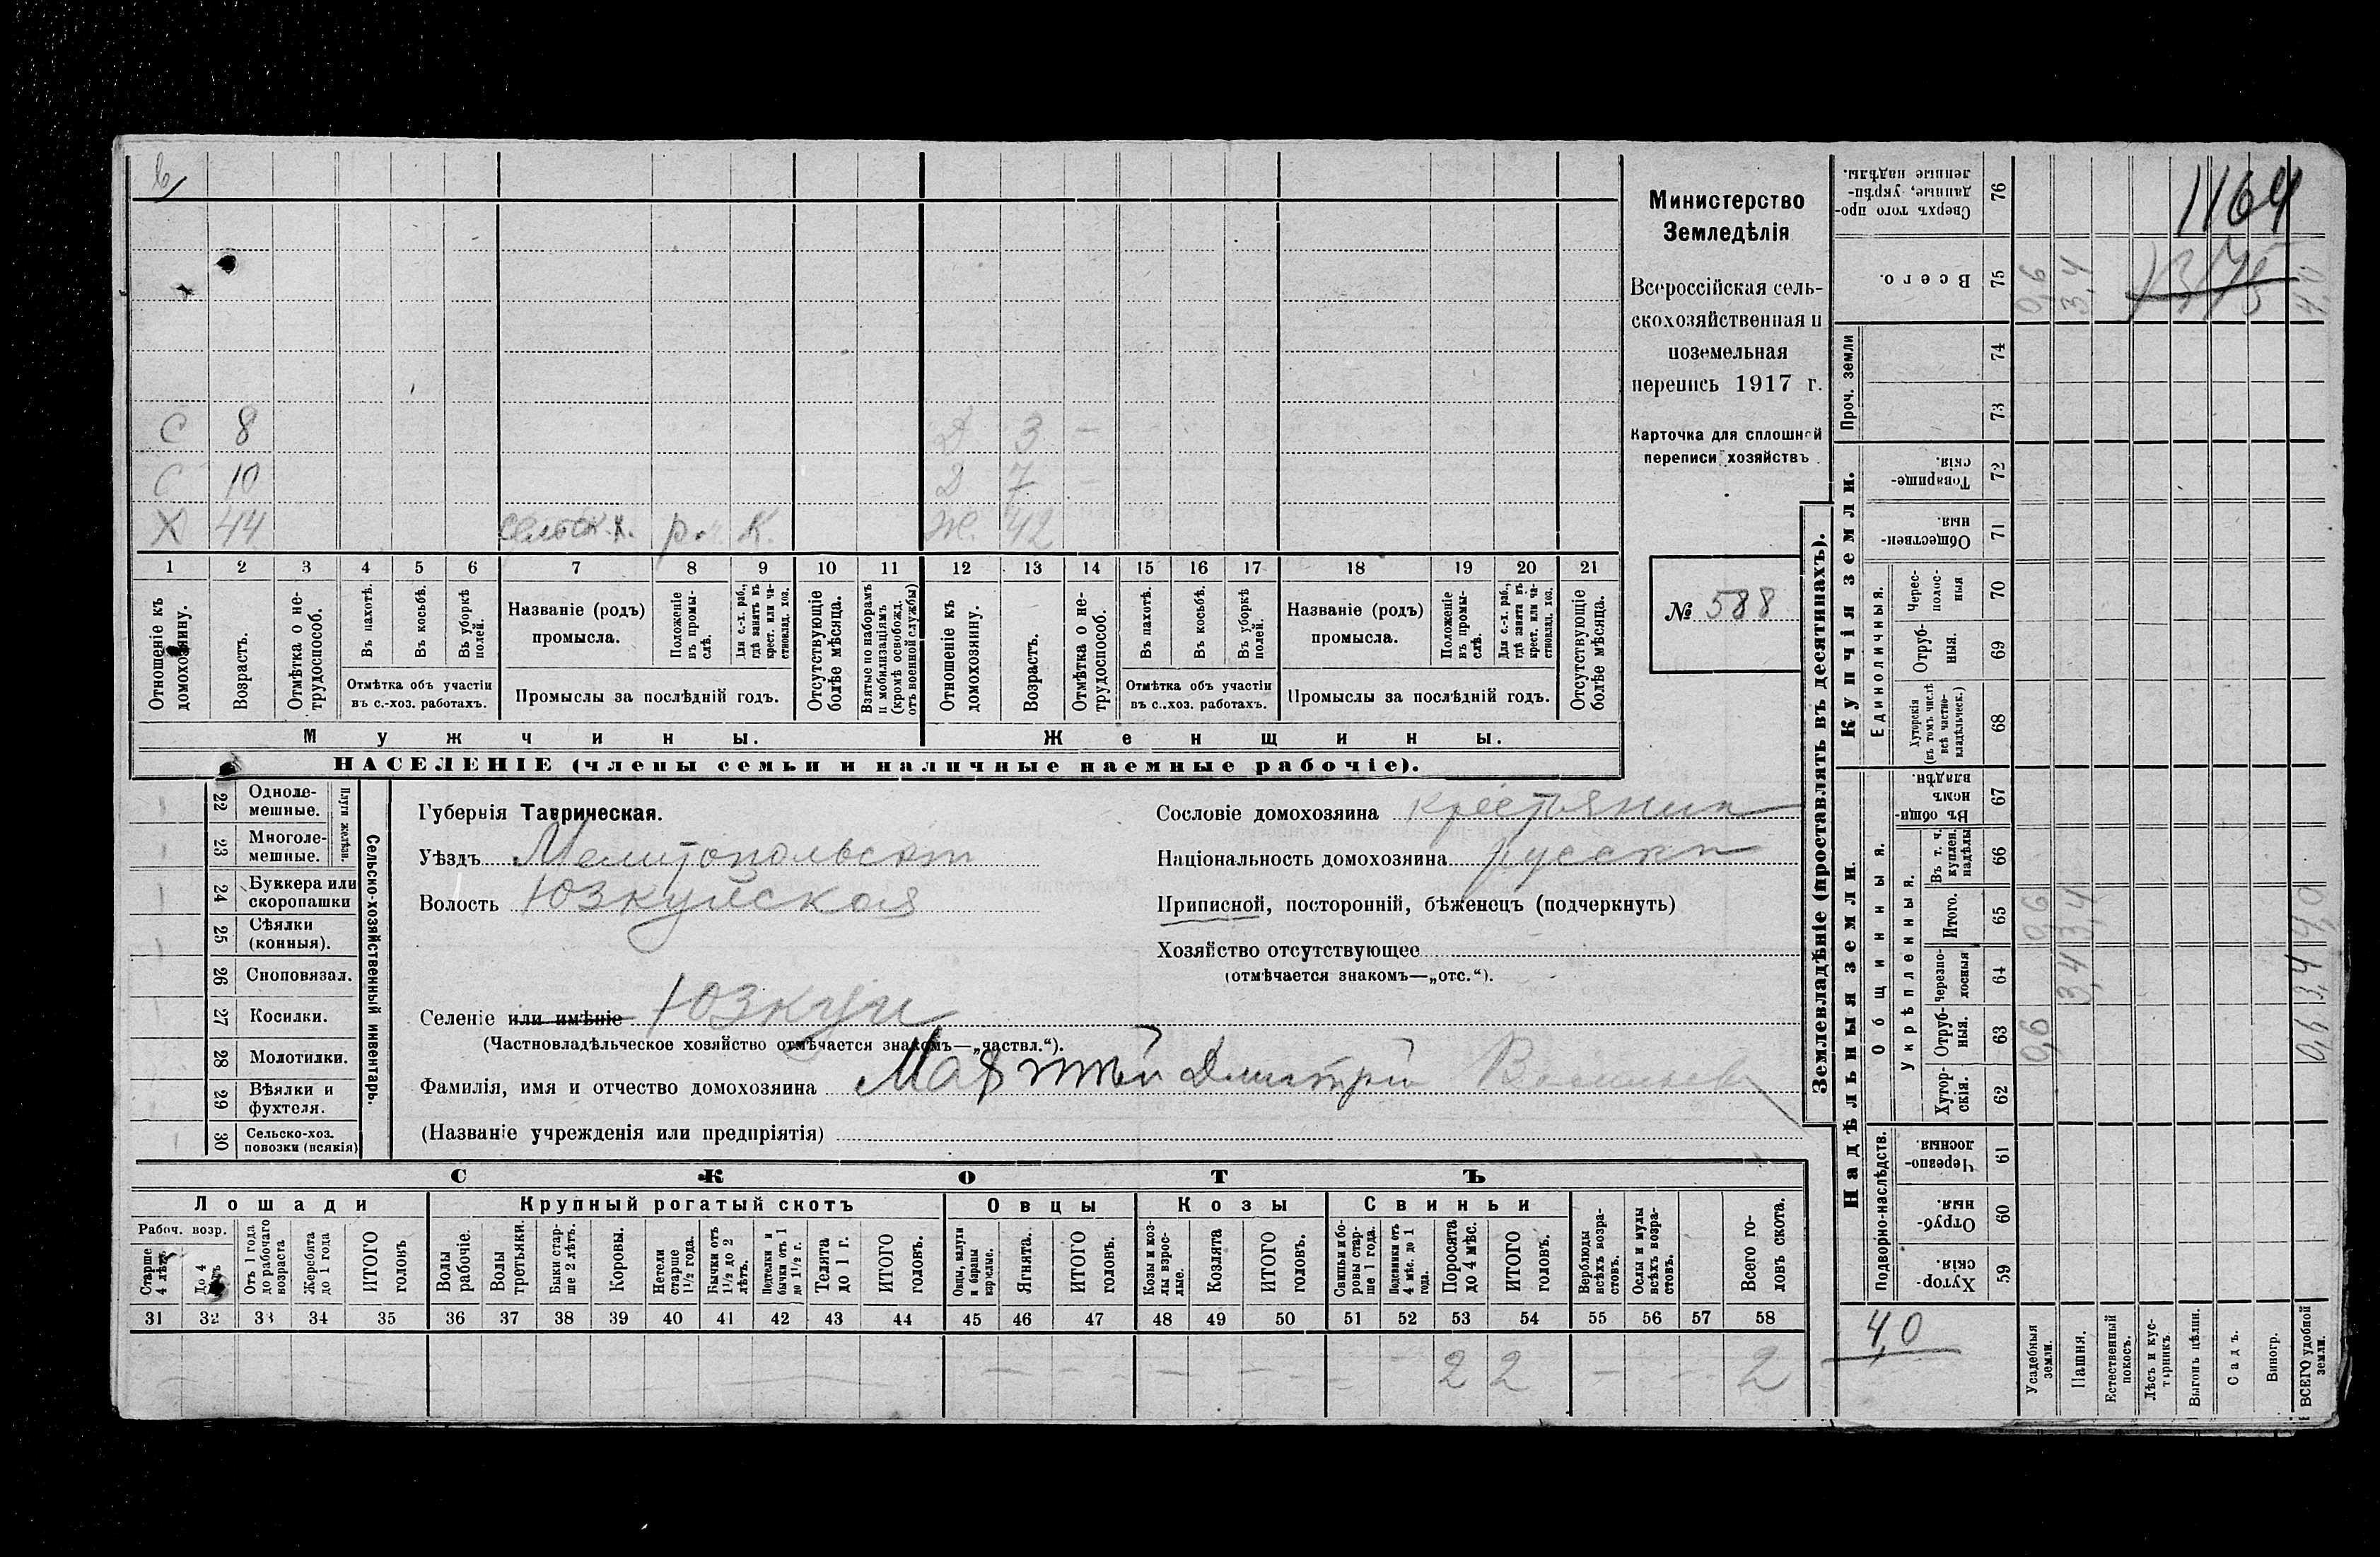 6
С 8 Д 3 —
С 10 Д. 7 —
Х 44 сельск. х. р. К. Ж. 42
1 2 3 4 5 6 7 8 9 10 11 12 13 14 15 16 17 18 19 20 21
Отношеніе къ домохозяину.
Возрастъ.
Отмѣтка о не-трудоспособ.
Въ пахотѣ.
Въ косьбѣ.
Въ уборкѣ полей.
Отмѣтка объ участіи въ с.-хоз. работахъ.
Названіе (родъ) промысла.
Положеніе въ промы-слѣ.
Для с.-х. раб., гдѣ занятъ въ крест. или ча-стновлад. хоз.
Промыслы за послѣдній годъ.
Отсутствующіе болѣе мѣсяца.
Взятые по наборамъ и мобилизаціямъ (кромѣ освобожд. отъ военной службы)
Отношеніе къ домохозяину.
Возрастъ.
Отмѣтка о не-трудоспособ.
Въ пахотѣ.
Въ косьбѣ.
Въ уборкѣ полей.
Отмѣтка объ участіи въ с.-хоз. работахъ.
Названіе (родъ) промысла.
Положеніе въ промы-слѣ.
Для с.-х. раб., гдѣ занята въ крест. или ча-стновлад. хоз.
Промыслы за послѣдній годъ.
Отсутствующіе болѣе мѣсяца.
Мужчины. Женщины.
НАСЕЛЕНІЕ (члены семьи и наличные наемные рабочіе).
Министерство
Земледѣлія
Всероссійская сель-
скохозяйственная и
поземельная
перепись 1917 г.
Карточка для сплошной
переписи хозяйствъ
№ 588
22 Одноле-мешные.
23 Многоле-мешные.
Плуги желѣзн.
24 Буккера или скоропашки
25 Сѣялки (конныя).
26 Сноповязал.
27 Косилки.
28 Молотилки.
29 Вѣялки и фухтеля.
30 Сельско-хоз. повозки (всякія)
Сельско-хозяйственный инвентарь.
Губернія Таврическая.
Уѣздъ Мелитопольскій
Волость Юзкуйская
Селеніе или имѣніе Юзкуи
(Частновладѣльческое хозяйство отмѣчается знакомъ—„частвл.“).
Фамилія, имя и отчество домохозяина Дмитрій
(Названіе учрежденія или предпріятія)
Сословіе домохозяина крестьянин
Національность домохозяина русскій
Приписной, посторонній, бѣженецъ (подчеркнуть)
Хозяйство отсутствующее
(отмѣчается знакомъ—„отс.“).
СКОТЪ
Лошади Крупный рогатый скотъ Овцы Козы Свиньи
Рабоч. возр.
Старше 4 лѣтъ
До 4 лѣтъ
Отъ 1 года до рабочаго возраста
Жеребята до 1 года
ИТОГО головъ
Волы рабочіе.
Волы третьяки.
Быки стар-ше 2 лѣтъ.
Коровы.
Нетели старше 1½ года.
Бычки отъ 1½ до 2 лѣтъ.
Подтелки и бычки отъ 1 до 1½ г.
Телята до 1 г.
ИТОГО головъ.
Овцы, валухи и бараны взрослые.
Ягнята.
ИТОГО головъ.
Козы и коз-лы взрос-лые.
Козлята
ИТОГО головъ.
Свиньи и бо-ровы стар-ше 1 года.
Подсвинки отъ 4 мѣс. до 1 года.
Поросята до 4 мѣс.
ИТОГО головъ.
Верблюды всѣхъ возра-стовъ.
Ослы и мулы всѣхъ возра-стовъ.
Всего го-ловъ скота.
31 32 33 34 35 36 37 38 39 40 41 42 43 44 45 46 47 48 49 50 51 52 53 54 55 56 57 58
2 2 2
Землевладѣніе (проставлять въ десятинахъ).
Надѣльныя земли. Купчія земли. Проч. земли
Подворно-наслѣдств.
Общинныя.
Укрѣпленныя.
Единоличныя.
Сверхъ того про-данные, укрѣп-ленные надѣлы. 76 1164
Всего. 75 0,6 3,4 4,0
74
73
Товарище-скія. 72
Обществен-ныя. 71
Черес-полос-ныя 70
Отруб-ныя. 69
Хуторскія (въ томъ числѣ всѣ частно-владѣльческ.) 68
Въ общин-номъ владѣн. 67
Въ т. ч. куплен. надѣлы 66
Итого. 65 0,6 3,4 4,0
Черезпо-лосныя 64 3,4 3,4
Отруб-ныя. 63 0,6 0,6
Хутор-скія. 62
Черезпо-лосныя 61
Отруб-ныя. 60
Хутор-скія. 59
4,0
Усадебныя земли.
Пашня.
Естественный покосъ.
Лѣсъ и кус-тарникъ.
Выгонъ цѣлин.
Садъ.
Виногр.
ВСЕГО удобной земли.